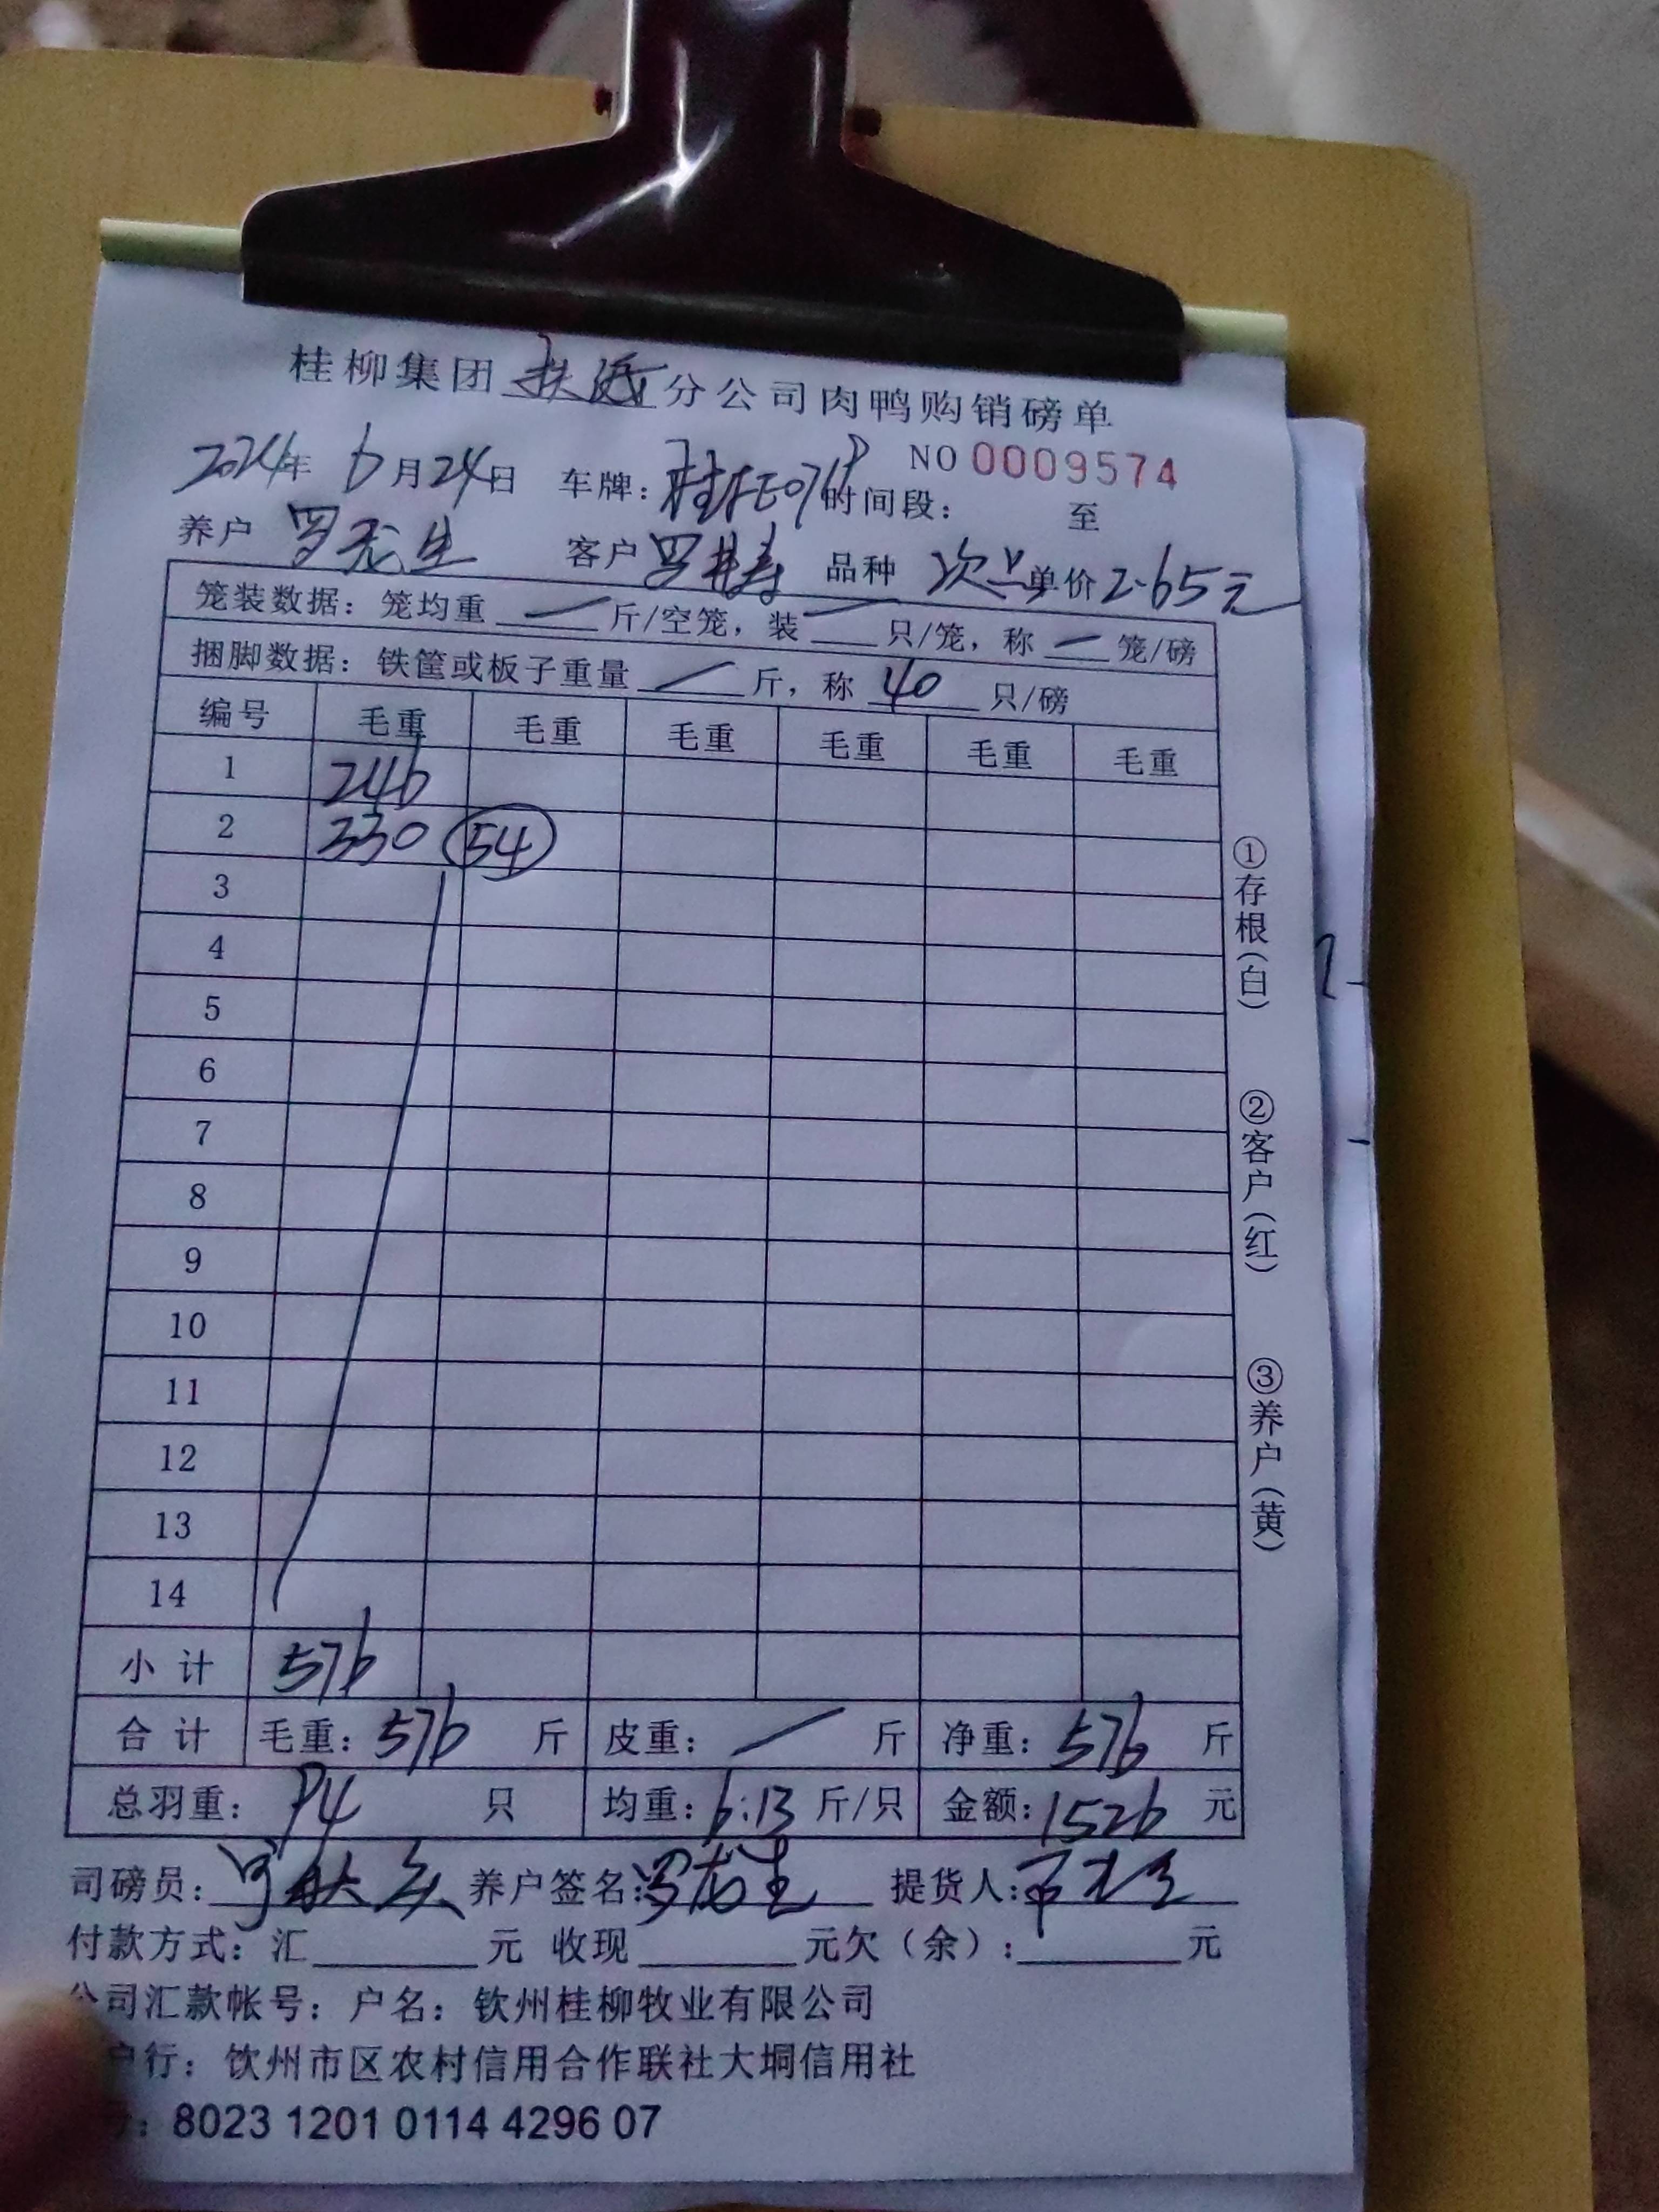 桂柳集团 扶绥 分公司肉鸭购销磅单
NO 0009574
2024年 6月24日 车牌: 时间段: 至
养户 客户 品种 次品 单价 2.65元
笼装数据: 笼均重 — 斤/空笼, 装 — 只/笼, 称 — 笼/磅
捆脚数据: 铁筐或板子重量 — 斤, 称 40 只/磅
编号 毛重 毛重 毛重 毛重 毛重 毛重
1 246
2 330 54
3
4
5
6
7
8
9
10
11
12
13
14
小计 576
合计 毛重: 576 斤 皮重: — 斤 净重: 576 斤
总羽重: 94 只 均重: 6.13 斤/只 金额: 1526 元
司磅员: 养户签名: 提货人:
付款方式: 汇 元 收现 元欠(余): 元
公司汇款帐号: 户名: 钦州桂柳牧业有限公司
户行: 钦州市区农村信用合作联社大垌信用社
: 8023 1201 0114 4296 07
①存根(白)
②客户(红)
③养户(黄)